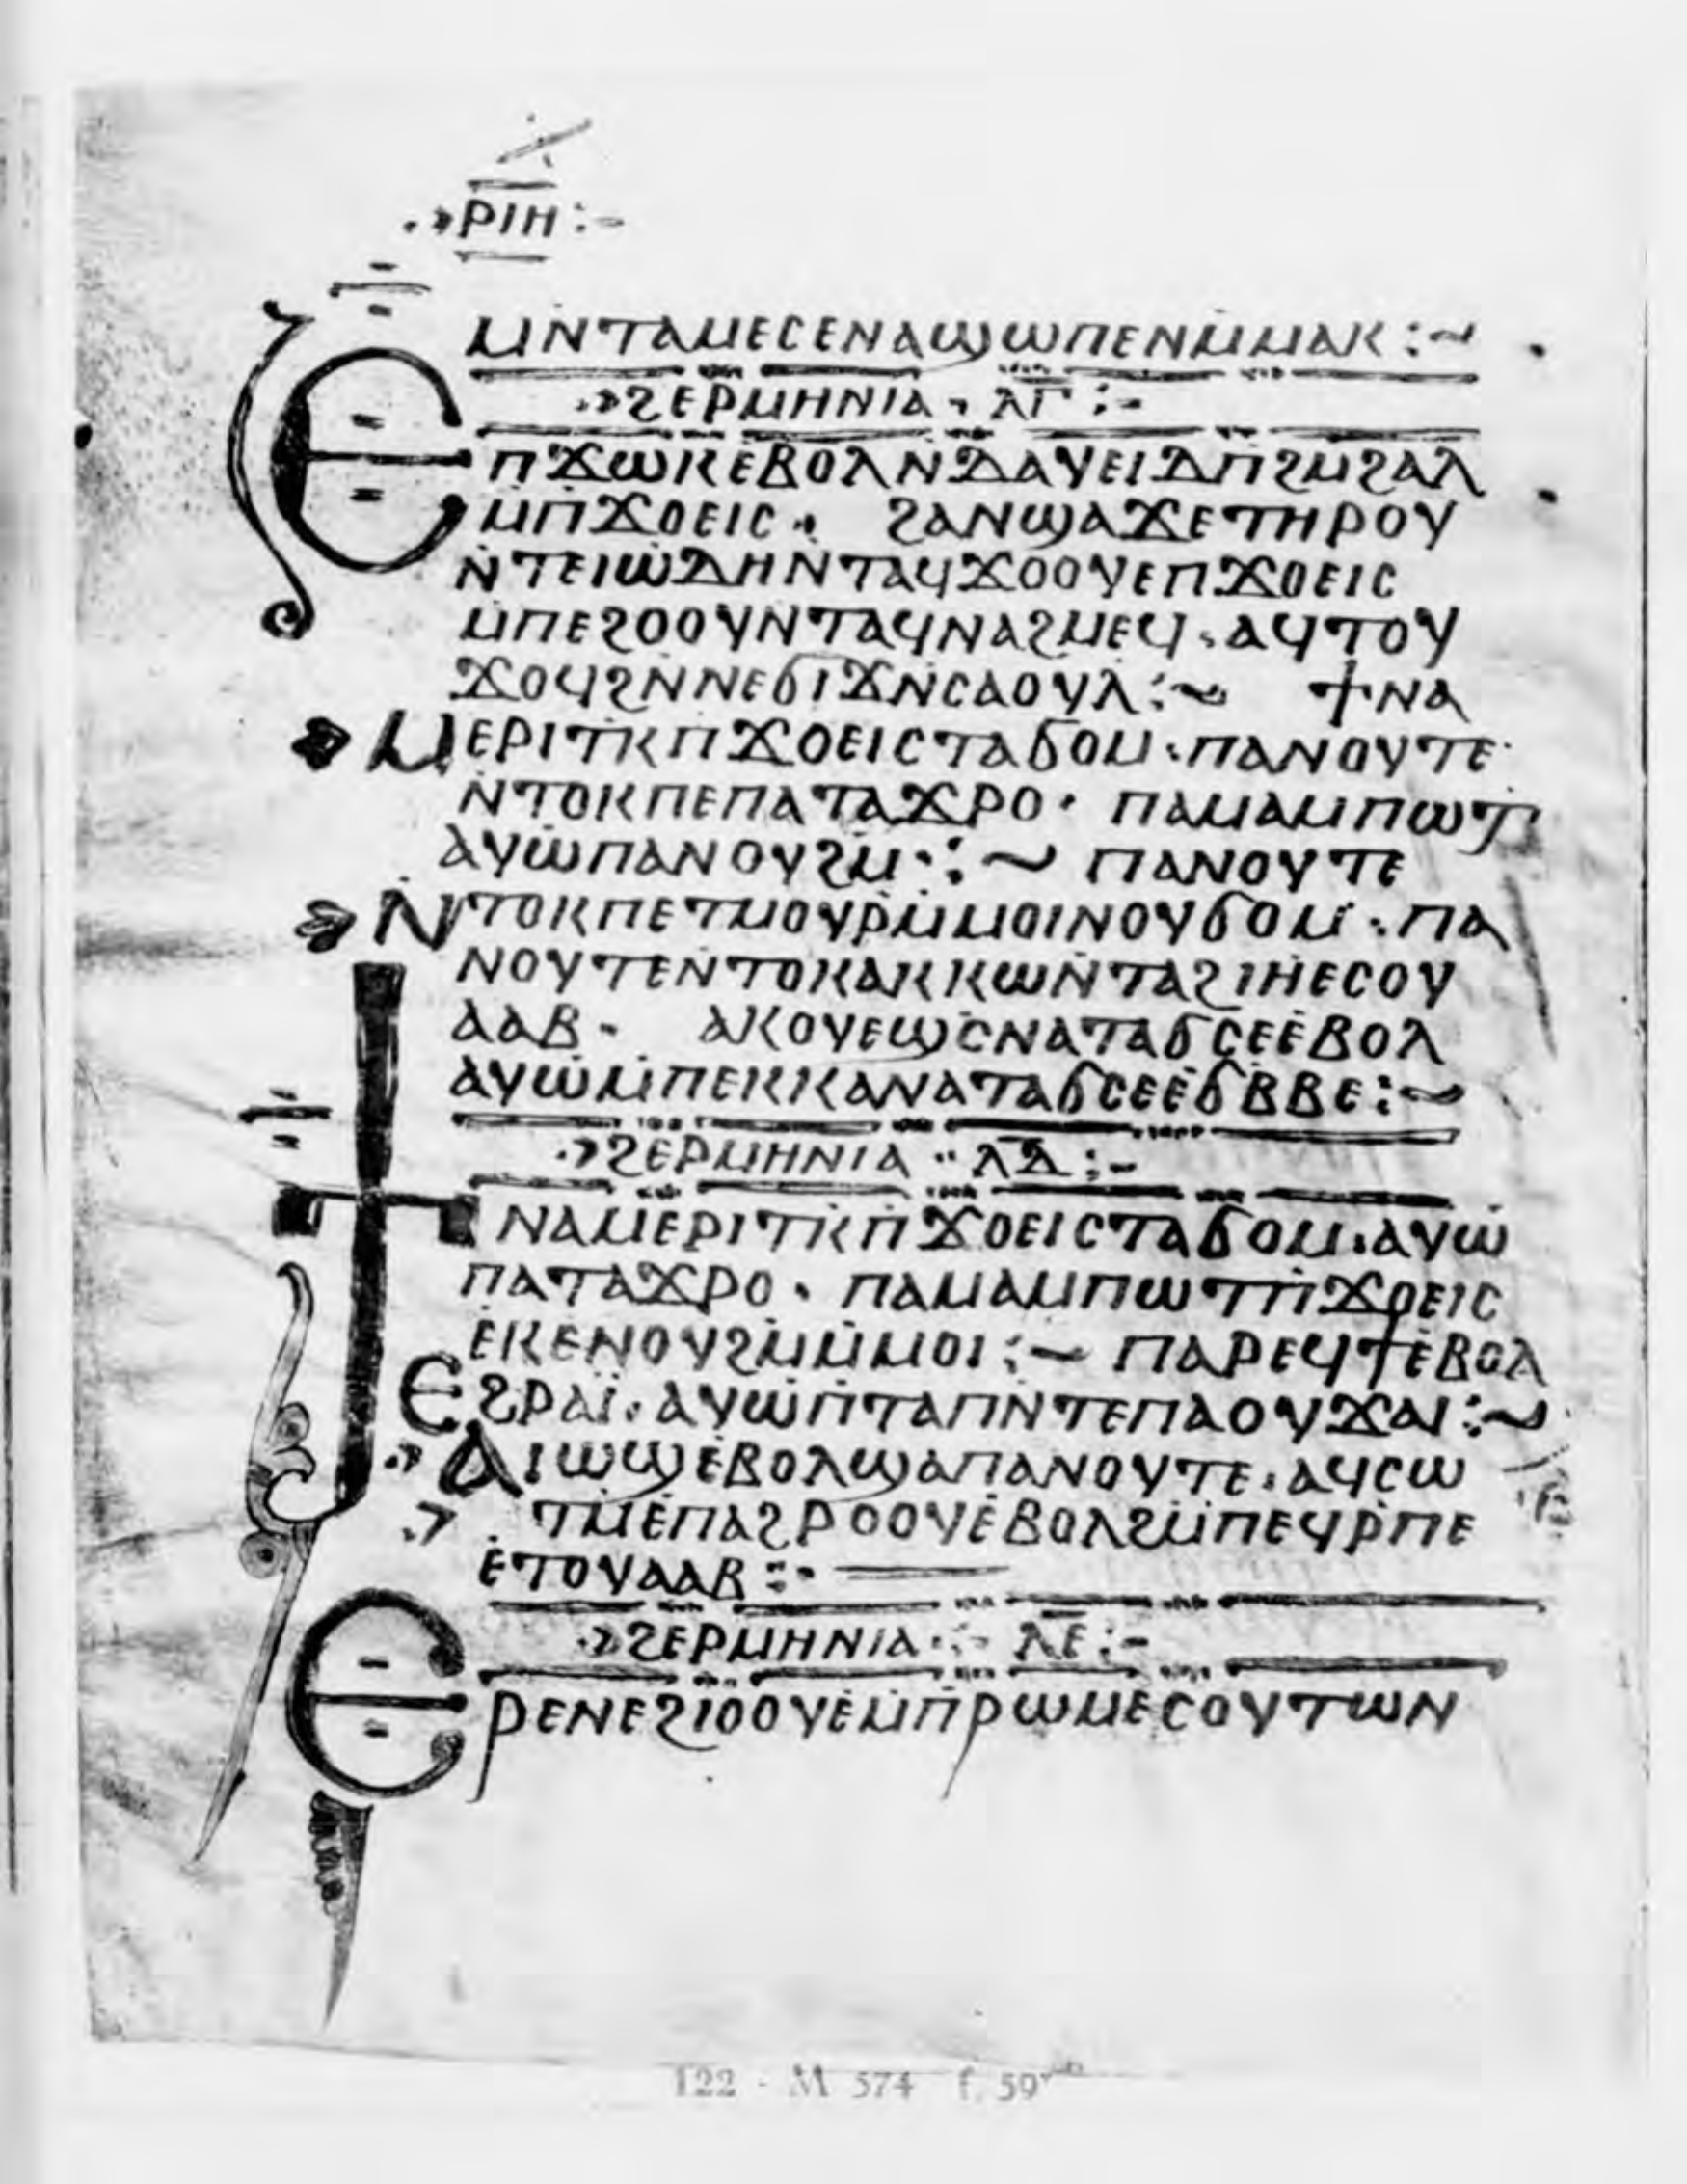 ⲣⲓⲏ :-
ⲙⲛⲧⲁⲙⲉⲥⲉⲛⲁϣⲱⲡⲉⲛⲙ̇ⲙⲁⲕ :~
ϩⲉⲣⲙⲏⲛⲓⲁ · ⲗ̅ⲅ̅ :-
ⲉⲡϫⲱⲕⲉⲃⲟⲗⲛ̇ⲇⲁⲩⲉⲓⲇⲡ̇ϩⲙ̇ϩⲁⲗ
ⲙ̇ⲡ̇ϫⲟⲉⲓⲥ · ϩⲁⲛϣⲁϫⲉⲧⲏⲣⲟⲩ
ⲛ̇ⲧⲉⲓⲱ̇ⲇⲏⲛ̇ⲧⲁϥϫⲟⲟⲩⲉⲡ̇ϫⲟⲉⲓⲥ
ⲙ̇ⲡⲉϩⲟⲟⲩⲛ̇ⲧⲁϥⲛⲁϩⲙⲉϥ · ⲁϥⲧⲟⲩ
ϫⲟϥϩⲛ̇ⲛⲉϭⲓϫⲛ̇ⲥⲁⲟⲩⲗ :~ ϯⲛⲁ
ⲙⲉⲣⲓⲧⲕ̇ⲡ̇ϫⲟⲉⲓⲥⲧⲁϭⲟⲙ · ⲡⲁⲛⲟⲩⲧⲉ ·
ⲛ̇ⲧⲟⲕⲡⲉⲡⲁⲧⲁϫⲣⲟ · ⲡⲁⲙⲁⲙ̇ⲡⲱⲧ
ⲁⲩⲱ̇ⲡⲁⲛⲟⲩϩⲙ̇ :~ ⲡⲁⲛⲟⲩⲧⲉ
ⲛ̇ⲧⲟⲕⲡⲉⲧⲙⲟⲩⲣⲙ̇ⲙⲟⲓⲛⲟⲩϭⲟⲙ · ⲡⲁ
ⲛⲟⲩⲧⲉⲛ̇ⲧⲟⲕⲁⲕⲕⲱⲛ̇ⲧⲁϩⲓⲏⲉⲥⲟⲩ
ⲁⲁⲃ · ⲁⲕⲟⲩⲉϣⲥ̇ⲛⲁⲧⲁϭⲥⲉⲉ̇ⲃⲟⲗ
ⲁⲩⲱ̇ⲙ̇ⲡⲉⲕⲕⲁⲛⲁⲧⲁϭⲥⲉⲉ̇ϭⲃ̇ⲃⲉ :~
ϩⲉⲣⲙⲏⲛⲓⲁ · ⲗ̅ⲇ̅ :-
ϯⲛⲁⲙⲉⲣⲓⲧⲕ̇ⲡ̇ϫⲟⲉⲓⲥⲧⲁϭⲟⲙ · ⲁⲩⲱ̇
ⲡⲁⲧⲁϫⲣⲟ · ⲡⲁⲙⲁⲙ̇ⲡⲱⲧⲡ̇ϫⲟⲉⲓⲥ
ⲉ̇ⲕⲉⲛⲟⲩϩⲙ̇ⲙ̇ⲙⲟⲓ :~ ⲡⲁⲣⲉϥϯⲉ̇ⲃⲟⲗ
ⲉϩⲣⲁⲓ̈ · ⲁⲩⲱ̇ⲡ̇ⲧⲁⲡⲛ̇ⲧⲉⲡⲁⲟⲩϫⲁⲓ :~
ⲁⲓⲱϣⲉ̇ⲃⲟⲗϣⲁⲡⲁⲛⲟⲩⲧⲉ · ⲁϥⲥⲱ
ⲧⲙ̇ⲉ̇ⲡⲁϩⲣⲟⲟⲩⲉ̇ⲃⲟⲗϩⲙ̇ⲡⲉϥⲣ̇ⲡⲉ
ⲉ̇ⲧⲟⲩⲁⲁⲃ :·
ϩⲉⲣⲙⲏⲛⲓⲁ · ⲗ̅ⲉ̅ :-
ⲉⲣⲉⲛⲉϩⲓⲟⲟⲩⲉ̇ⲙ̇ⲡ̇ⲣⲱⲙⲉⲥⲟⲩⲧⲱⲛ
122 - M 574 f. 59